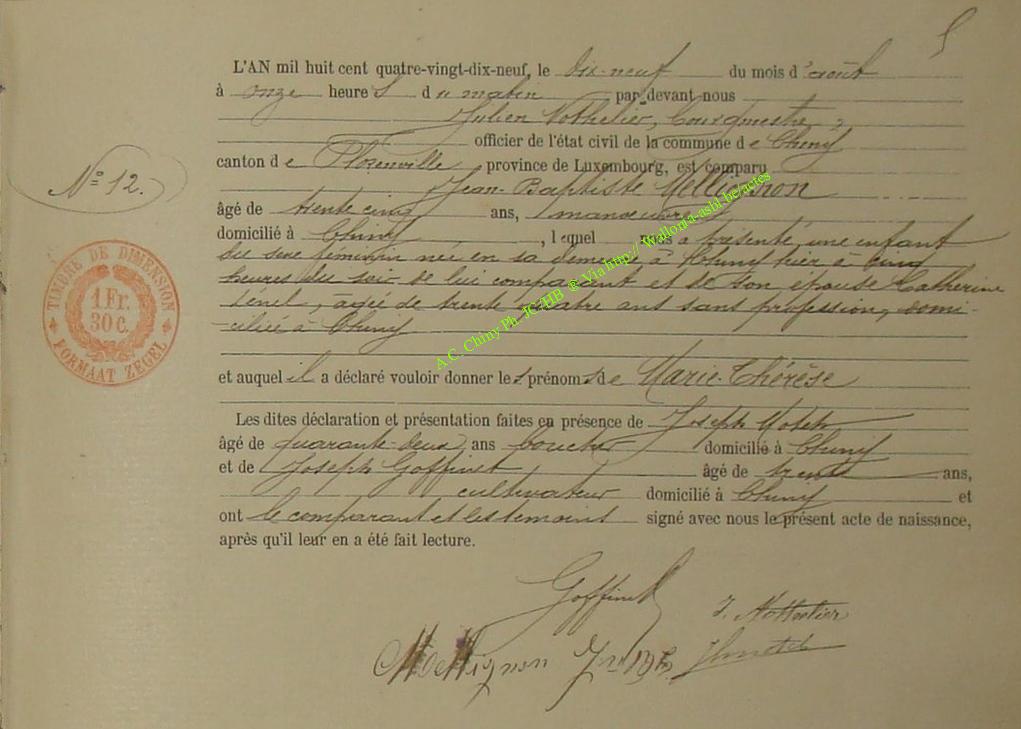 5
L'AN mil huit cent quatre-vingt-dix-neuf, le dix-neuf du mois d'août
à onze heures du matin par devant nous
Julien Nothelier, Bourgmestre,
officier de l'état civil de la commune de Chiny
canton de Florenville, province de Luxembourg, est comparu
N° 12.
Jean-Baptiste Mellignon
âgé de trente cinq ans, manoeuvre
domicilié à Chiny, lequel nous a présenté une enfant
du sexe féminin née en sa demeure à Chiny hier à cinq
heures du soir de lui comparant et de son épouse Catherine
agée de trente quatre ans sans profession, domi-
ciliée à Chiny
et auquel il a déclaré vouloir donner les prénoms de Marie-Thérèse
Les dites déclaration et présentation faites en présence de Joseph
âgé de quarante-deux ans boucher domicilié à Chiny
et de Joseph Goffinet âgé de trente ans,
cultivateur domicilié à Chiny et
ont le comparant et les temoins signé avec nous le présent acte de naissance,
après qu'il leur en a été fait lecture.
Goffinet J. Nothelier
Mellignon Jn Bte
TIMBRE DE DIMENSION
1 Fr.
30 c.
FORMAAT ZEGEL
A.C. Chiny Ph. JC/HB @ Via http:// Wallonia-asbl.be/actes